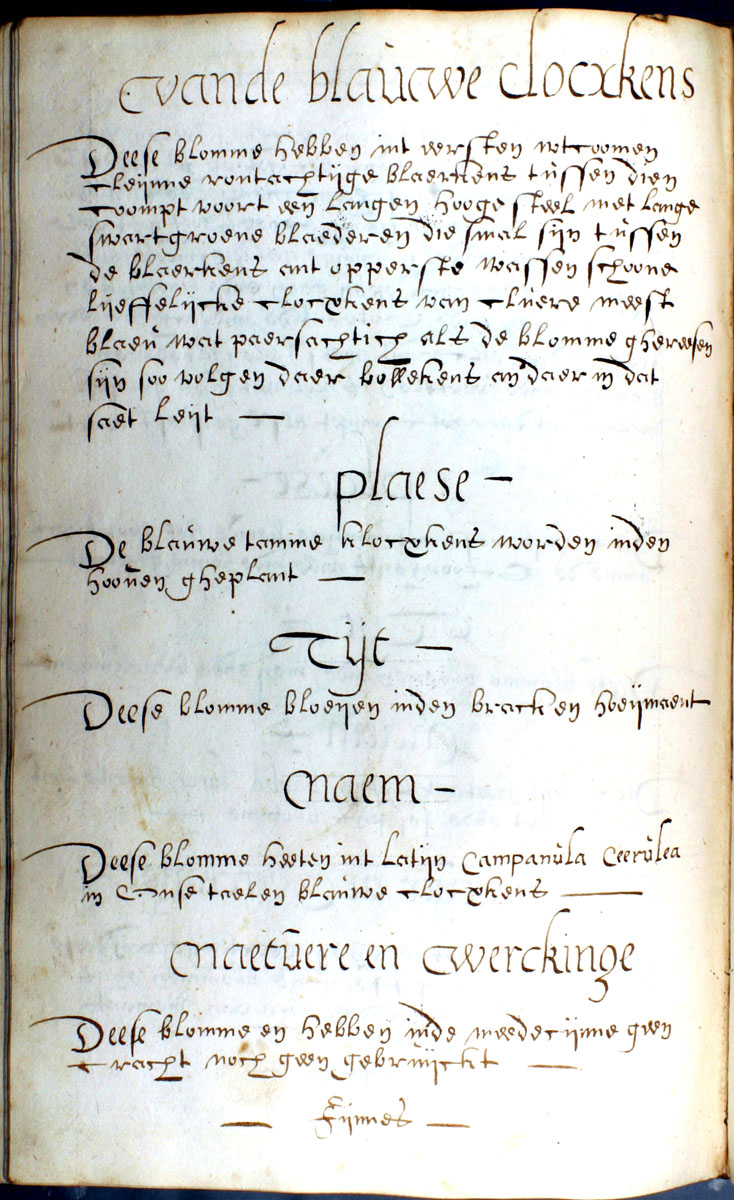 vande blaùwe clocxkens
Deese blomme hebben int eersten wtcoomen
cleijnne rontachtijge blaerkens tùssen dien
coompt voort een langen hooge steel met lange
swartgroene blaederen die smal sijn tùssen
de blaerkens ant opperste wassen schoone
lijeffelijcke clocxkens van clùere meest
blaeù wat paersachtich als de blomme gheweesen
sijn soo volgen daer bollekens an daer in dat
saet leijt —
plaese –
De blaùwe tamme klocxkens worden inden
hooùen gheplant —
Tijt –
Deese blomme bloeijen inden bracken hoeijmaent
Naem –
Deese blomme heeten int latijn Campanùla Ceerùlea
in Onse taelen blaùwe clocxkens —
Naetùere en werckinge
Deese blomme en hebben inde meedecijnne geen
cracht noch geen gebruijckt —
— Fijnnes —